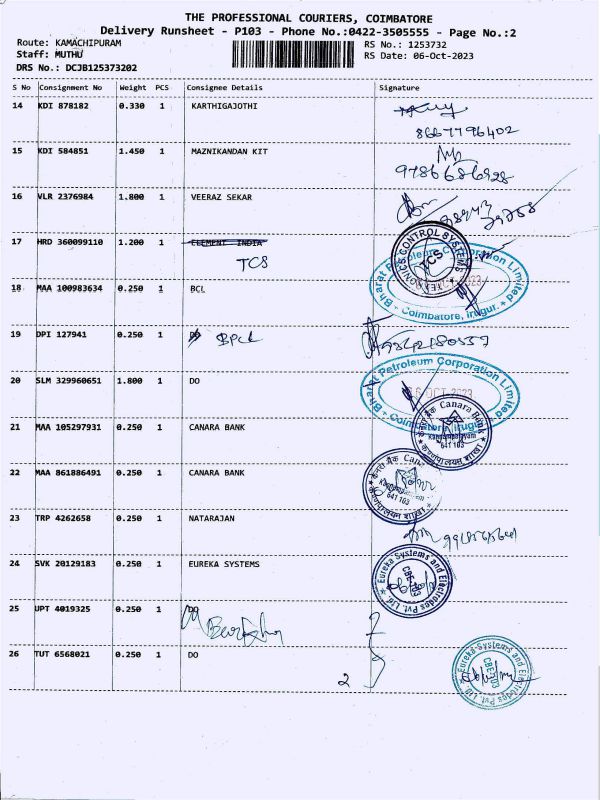 THE PROFESSIONAL COURIERS, COIMBATORE
Delivery Runsheet - P103 - Phone No.:0422-3505555 - Page No.:2
Route: KAMACHIPURAM
RS No.: 1253732
Staff: MUTHU
RS Date: 06-Oct-2023
DRS No.: DCJB125373202
S No Consignment No Weight PCS Consignee Details Signature
14 KDI 878182 0.330 1 KARTHIGAJOTHI
8667796402
15 KDI 584851 1.450 1 MAZNIKANDAN KIT
9786686928
16 VLR 2376984 1.800 1 VEERAZ SEKAR
17 HRD 360099110 1.200 1 ELEMENT INDIA
TCS
18 MAA 100983634 0.250 1 BCL
Bharat Petroleum Corporation Limited
Coimbatore, Irugur.
19 DPI 127941 0.250 1 BPCL
20 SLM 329960651 1.800 1 DO
Bharat Petroleum Corporation Limited
6 OCT 2023
21 MAA 105297931 0.250 1 CANARA BANK
केनरा बैंक Canara Bank
641 103
22 MAA 861886491 0.250 1 CANARA BANK
केनरा बैंक
641 103
23 TRP 4262658 0.250 1 NATARAJAN
24 SVK 20129183 0.250 1 EUREKA SYSTEMS
Eureka Systems and Electrodes Pvt. Ltd.
CBE-103
25 UPT 4019325 0.250 1 DO
26 TUT 6568021 0.250 1 DO
2
Eureka Systems and Electrodes Pvt. Ltd.
CBE-103